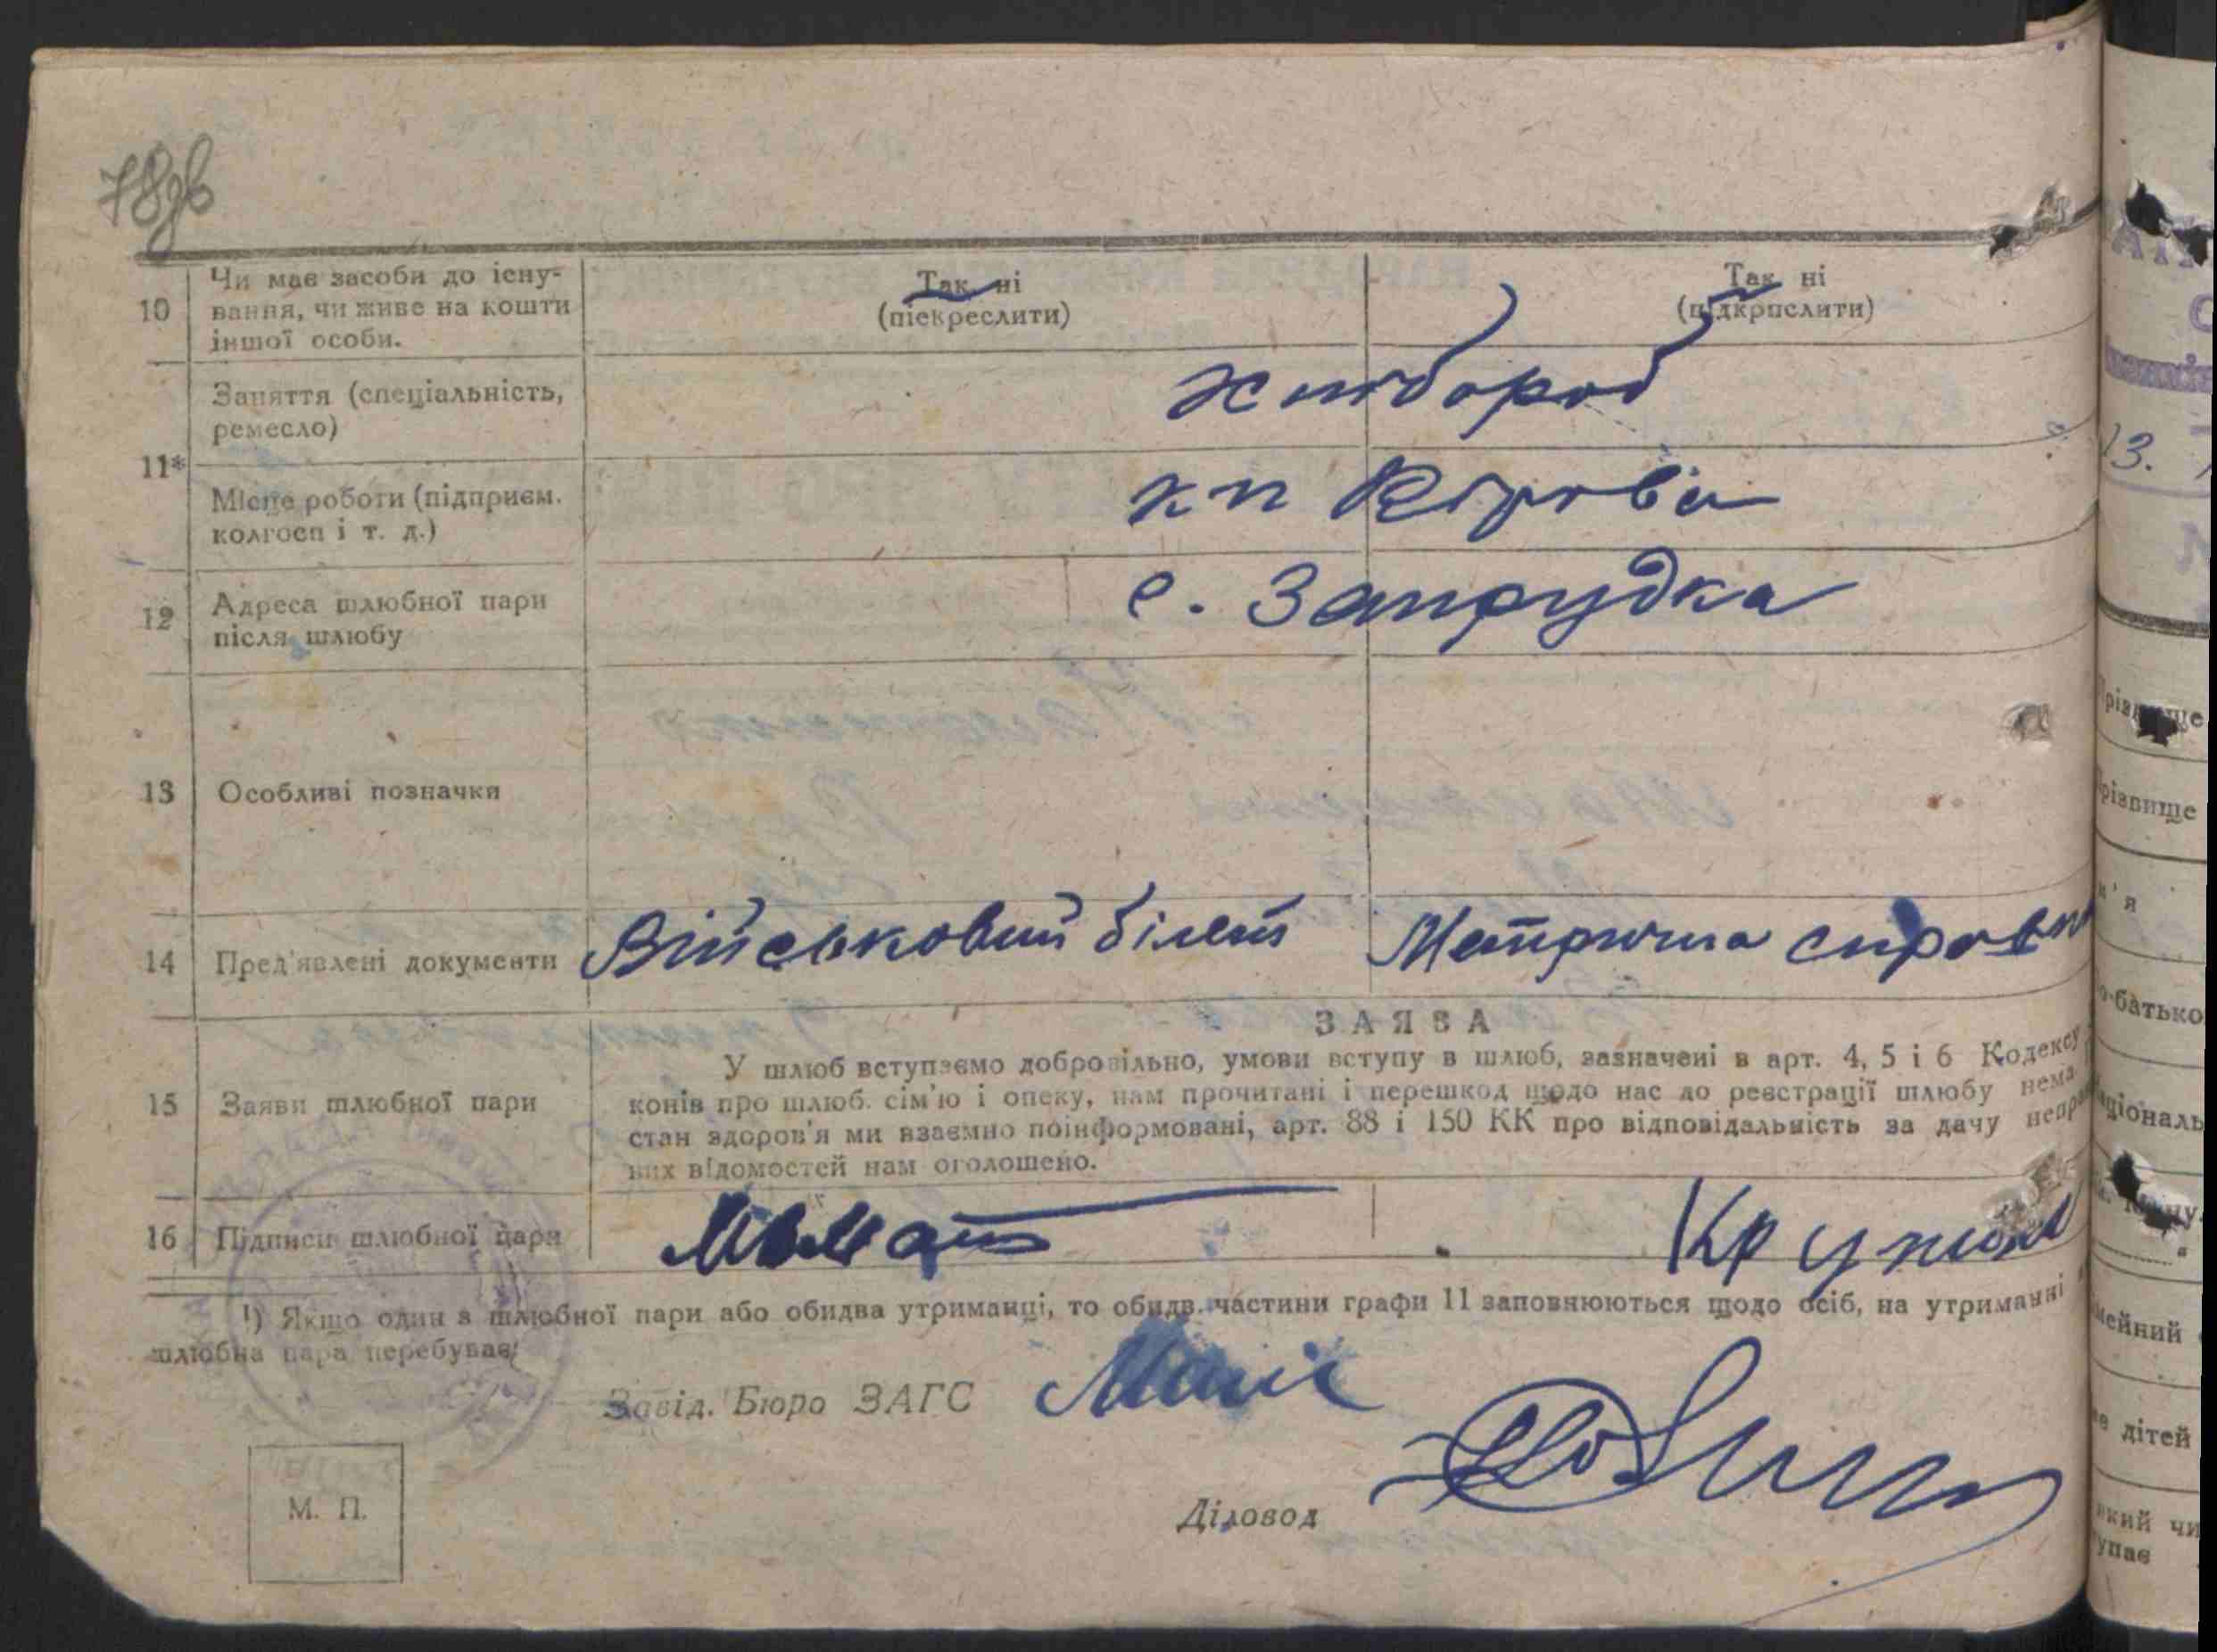 78зв
10
Чи має засоби до існу-
вання, чи живе на кошти
іншої особи.
Так, ні
(піекреслити)
Так ні
(підкрпслити)
11*
Заняття (спеціальність,
ремесло)
хлібороб
Місце роботи (підприєм.
колгосп і т. д.)
кп Кірова
12
Адреса шлюбної пари
після шлюбу
с. Запрудка
13
Особливі позначки
14
Пред'явлені документи
Військовий білет
Метрична
15
Заяви шлюбної пари
ЗАЯВА
У шлюб вступаємо добровільно, умови вступу в шлюб, зазначені в арт. 4, 5 і 6 Кодексу
конів про шлюб. сім'ю і опеку, нам прочитані і перешкод щодо нас до реєстрації шлюбу нема
стан здоров'я ми взаємно поінформовані, арт. 88 і 150 КК про відповідальність за дачу непра
них відомостей нам оголошено.
16
Підписи шлюбної пари
¹) Якщо один з шлюбної пари або обидва утриманці, то обидв. частини графи 11 заповнюються щодо осіб, на утриманні
шлюбна пара перебуває
Завід. Бюро ЗАГС
Діловод
М. П.
13.
різвище
м'я
о-батько
ціональ
мейний
дітей
який чи
упає